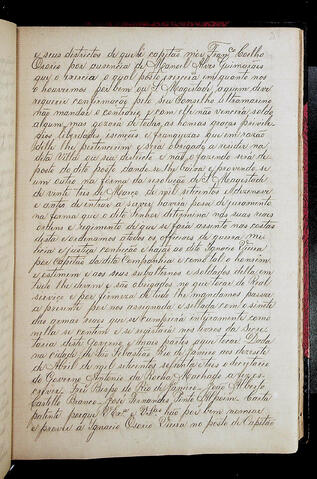 e seus districtos de que he capitão mór Franco. Coelho
Osorio por ausencia de Manoel Alves Guimarães
que o exercia o qual posto exercerá emquanto nós
o houvermos por bem ou S. Magestade, a quem deve
requerer confirmação pelo seu Conselho Ultramarino
não mandar o contrario, e com elle não vencerá soldo
algum, mas gozará de todas as honras graças privile
gios, liberdades, isenções e franquezas que em razão
delle lhe pertencerem e será obrigado a residir na
dita Villa ou seu districto e não o fazendo será de
posto do dito posto dando-se lhe baixa e provendo-se
em outro na forma da resolução de S. Magestade
de vinte seis de Março de mil setecentos e dezenove
e antes de entrar a servir haverá posse de juramento
na forma que o dito Senhor determina nas suas reaes
ordens e regimento de que se fará assento nas costas
desta e ordenamos a todos os officiaes de guerra mi
licia e justiça conheção e hajão ao dito Ignacio Vieira
por Capitão da dita Companhia e como tal o honrem
e estimem e aos seus subalternos e soldados della em
tudo lhe devem e são obrigados no que tocar do Real
serviço e por firmeza de tudo lhe mandamos passar
a presente por nós assignada e sellada com o sinete
das armas reaes que se cumprirá inteiramente como
nella se contém e se registará nos livros da Secre
taria deste Governo e mais partes a que tocar. Dada
na cidade de São Sebastião Rio de Janeiro aos dezesete
de Abril de mil setecentos sessenta e tres o Secretario
do Governo Antonio da Rocha Machado a fez es
crever. Frei Bispo do Rio de Janeiro. João Alberto
Castello Branco. José Fernandes Pinto Alpoim. Carta
patente porque V. Exa. e V. Sas. hão por bem nomear
e prover a Ignacio Osorio Vieira no posto de Capitão